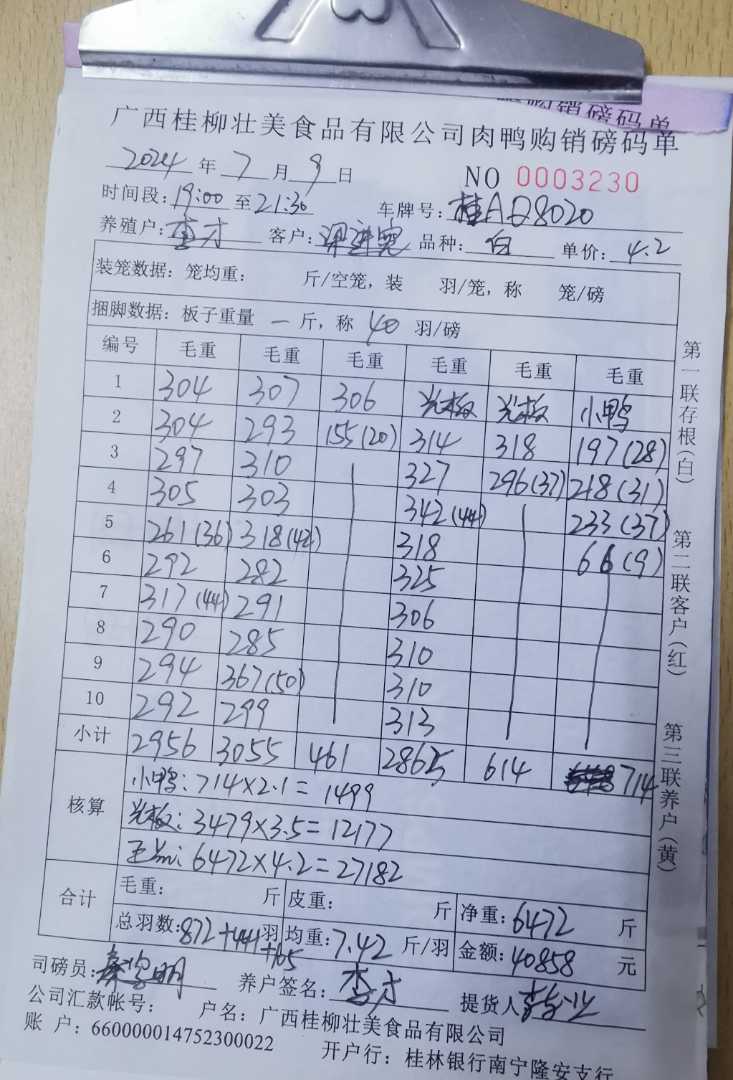 购销磅码单
广西桂柳壮美食品有限公司肉鸭购销磅码单
2024年7月9日 NO 0003230
时间段:19:00至21:30 车牌号:桂AQ8020
养殖户: 李才 客户: 品种: 白 单价: 4.2
装笼数据: 笼均重: 斤/空笼,装 羽/笼,称 笼/磅
捆脚数据: 板子重量 一 斤,称 40 羽/磅
编号 毛重 毛重 毛重 毛重 毛重 毛重
1 304 307 306 光板 光板 小鸭
2 304 293 155(20) 314 318 197(28)
3 297 310 327 296(37) 218(31)
4 305 303 342(44) 233(37)
5 261(36) 318(42) 318 66(9)
6 292 282 325
7 317(44) 291 306
8 290 285 310
9 294 367(50) 310
10 292 299 313
小计 2956 3055 461 2865 614 714
核算
小鸭:714×2.1=1499
光板:3479×3.5=12177
正品:6472×4.2=27182
合计
毛重: 斤 皮重: 斤 净重:6472 斤
总羽数:872+441+105羽 均重:7.42 斤/羽 金额:40858 元
司磅员: 养户签名: 李才 提货人
公司汇款帐号: 户名:广西桂柳壮美食品有限公司
账 户:660000014752300022 开户行:桂林银行南宁隆安支行
第一联存根(白)
第二联客户(红)
第三联养户(黄)